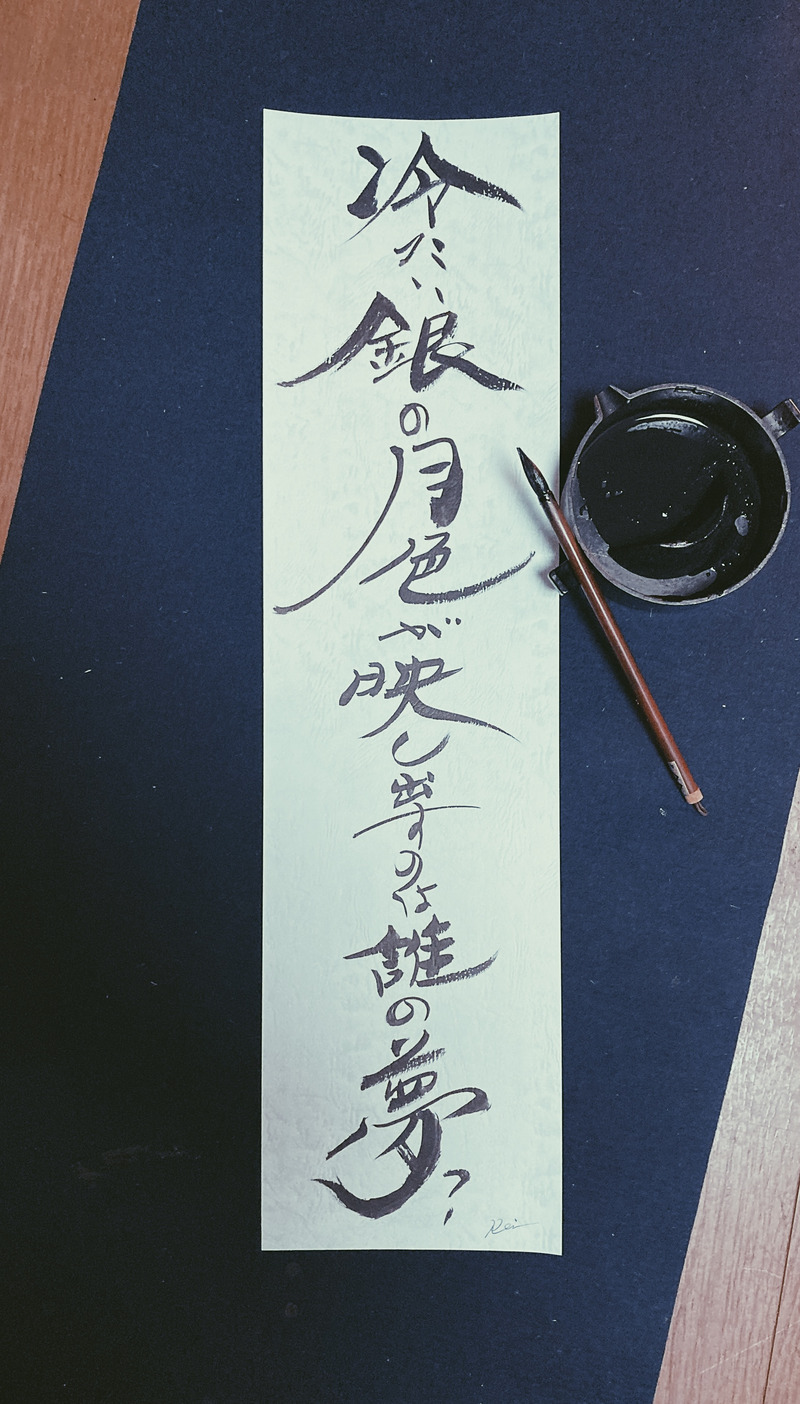 冷たい銀の月色が映し出すのは誰の夢?
Rei